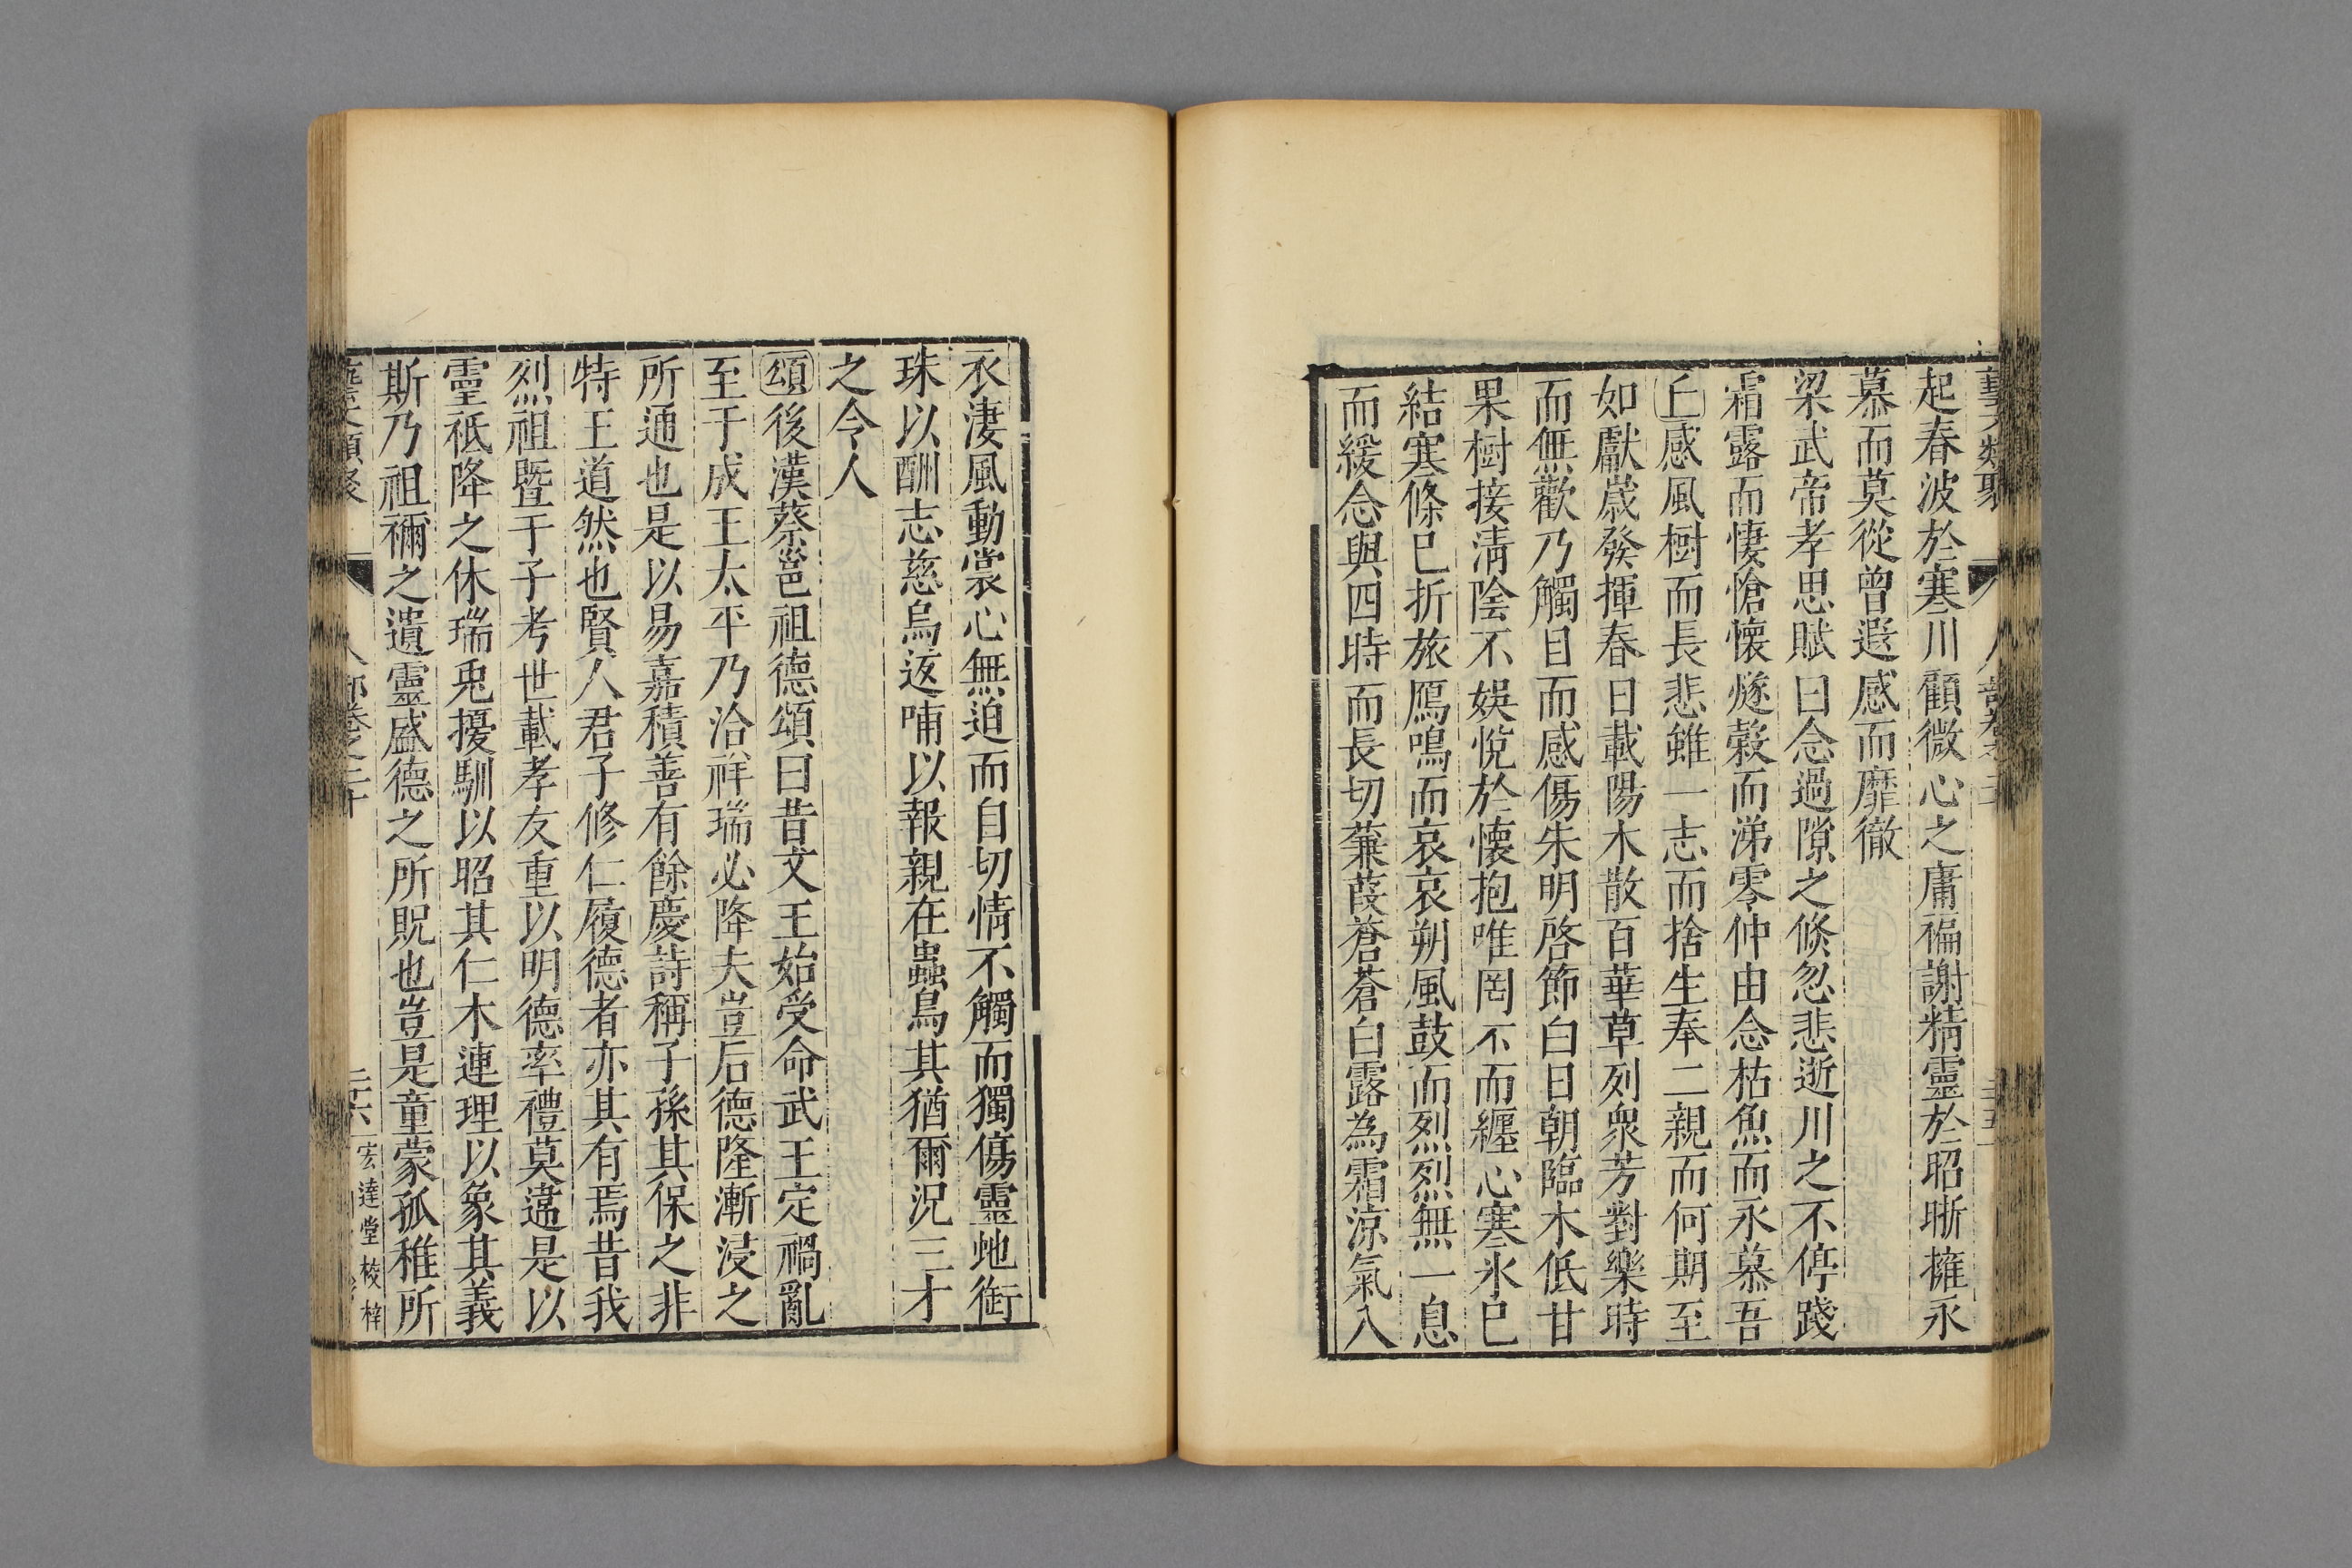 藝文類聚 人部卷之二十 二十五
起春波於寒川顧微心之庸褊謝精靈於昭晣擁永
慕而莫從曾遐感而靡徹
梁武帝孝思賦曰念過隙之倏忽悲逝川之不停踐
霜露而悽愴懷燧榖而涕零仲由念枯魚而永慕吾
丘感風樹而長悲雖一志而捨生奉二親而何期至
如獻歲發揮春日載陽木散百華草列衆芳對樂時
而無歡乃觸目而感傷朱明啓節白日朝臨木低甘
果樹接清陰不娛悅於懷抱唯罔不而纏心寒氷已
結寒條已折旅鴈鳴而哀哀朔風鼓而烈烈無一息
而緩念與四時而長切蒹葭蒼蒼白露為霜涼氣入
衣淒風動裳心無迫而自切情不觸而獨傷靈虵銜
珠以酬志慈烏返哺以報親在蟲鳥其猶爾況三才
之令人
頌後漢蔡邕祖德頌曰昔文王始受命武王定禍亂
至于成王太平乃洽祥瑞必降夫豈后德隆漸浸之
所通也是以易嘉積善有餘慶詩稱子孫其保之非
特王道然也賢人君子修仁履德者亦其有焉昔我
烈祖暨于子考世載孝友重以明德率禮莫違是以
靈祗降之休瑞兎擾馴以昭其仁木連理以象其義
斯乃祖禰之遺靈盛德之所貺也豈是童蒙孤稚所
藝文類聚 人部卷之二十 二十六 宏達堂校梓